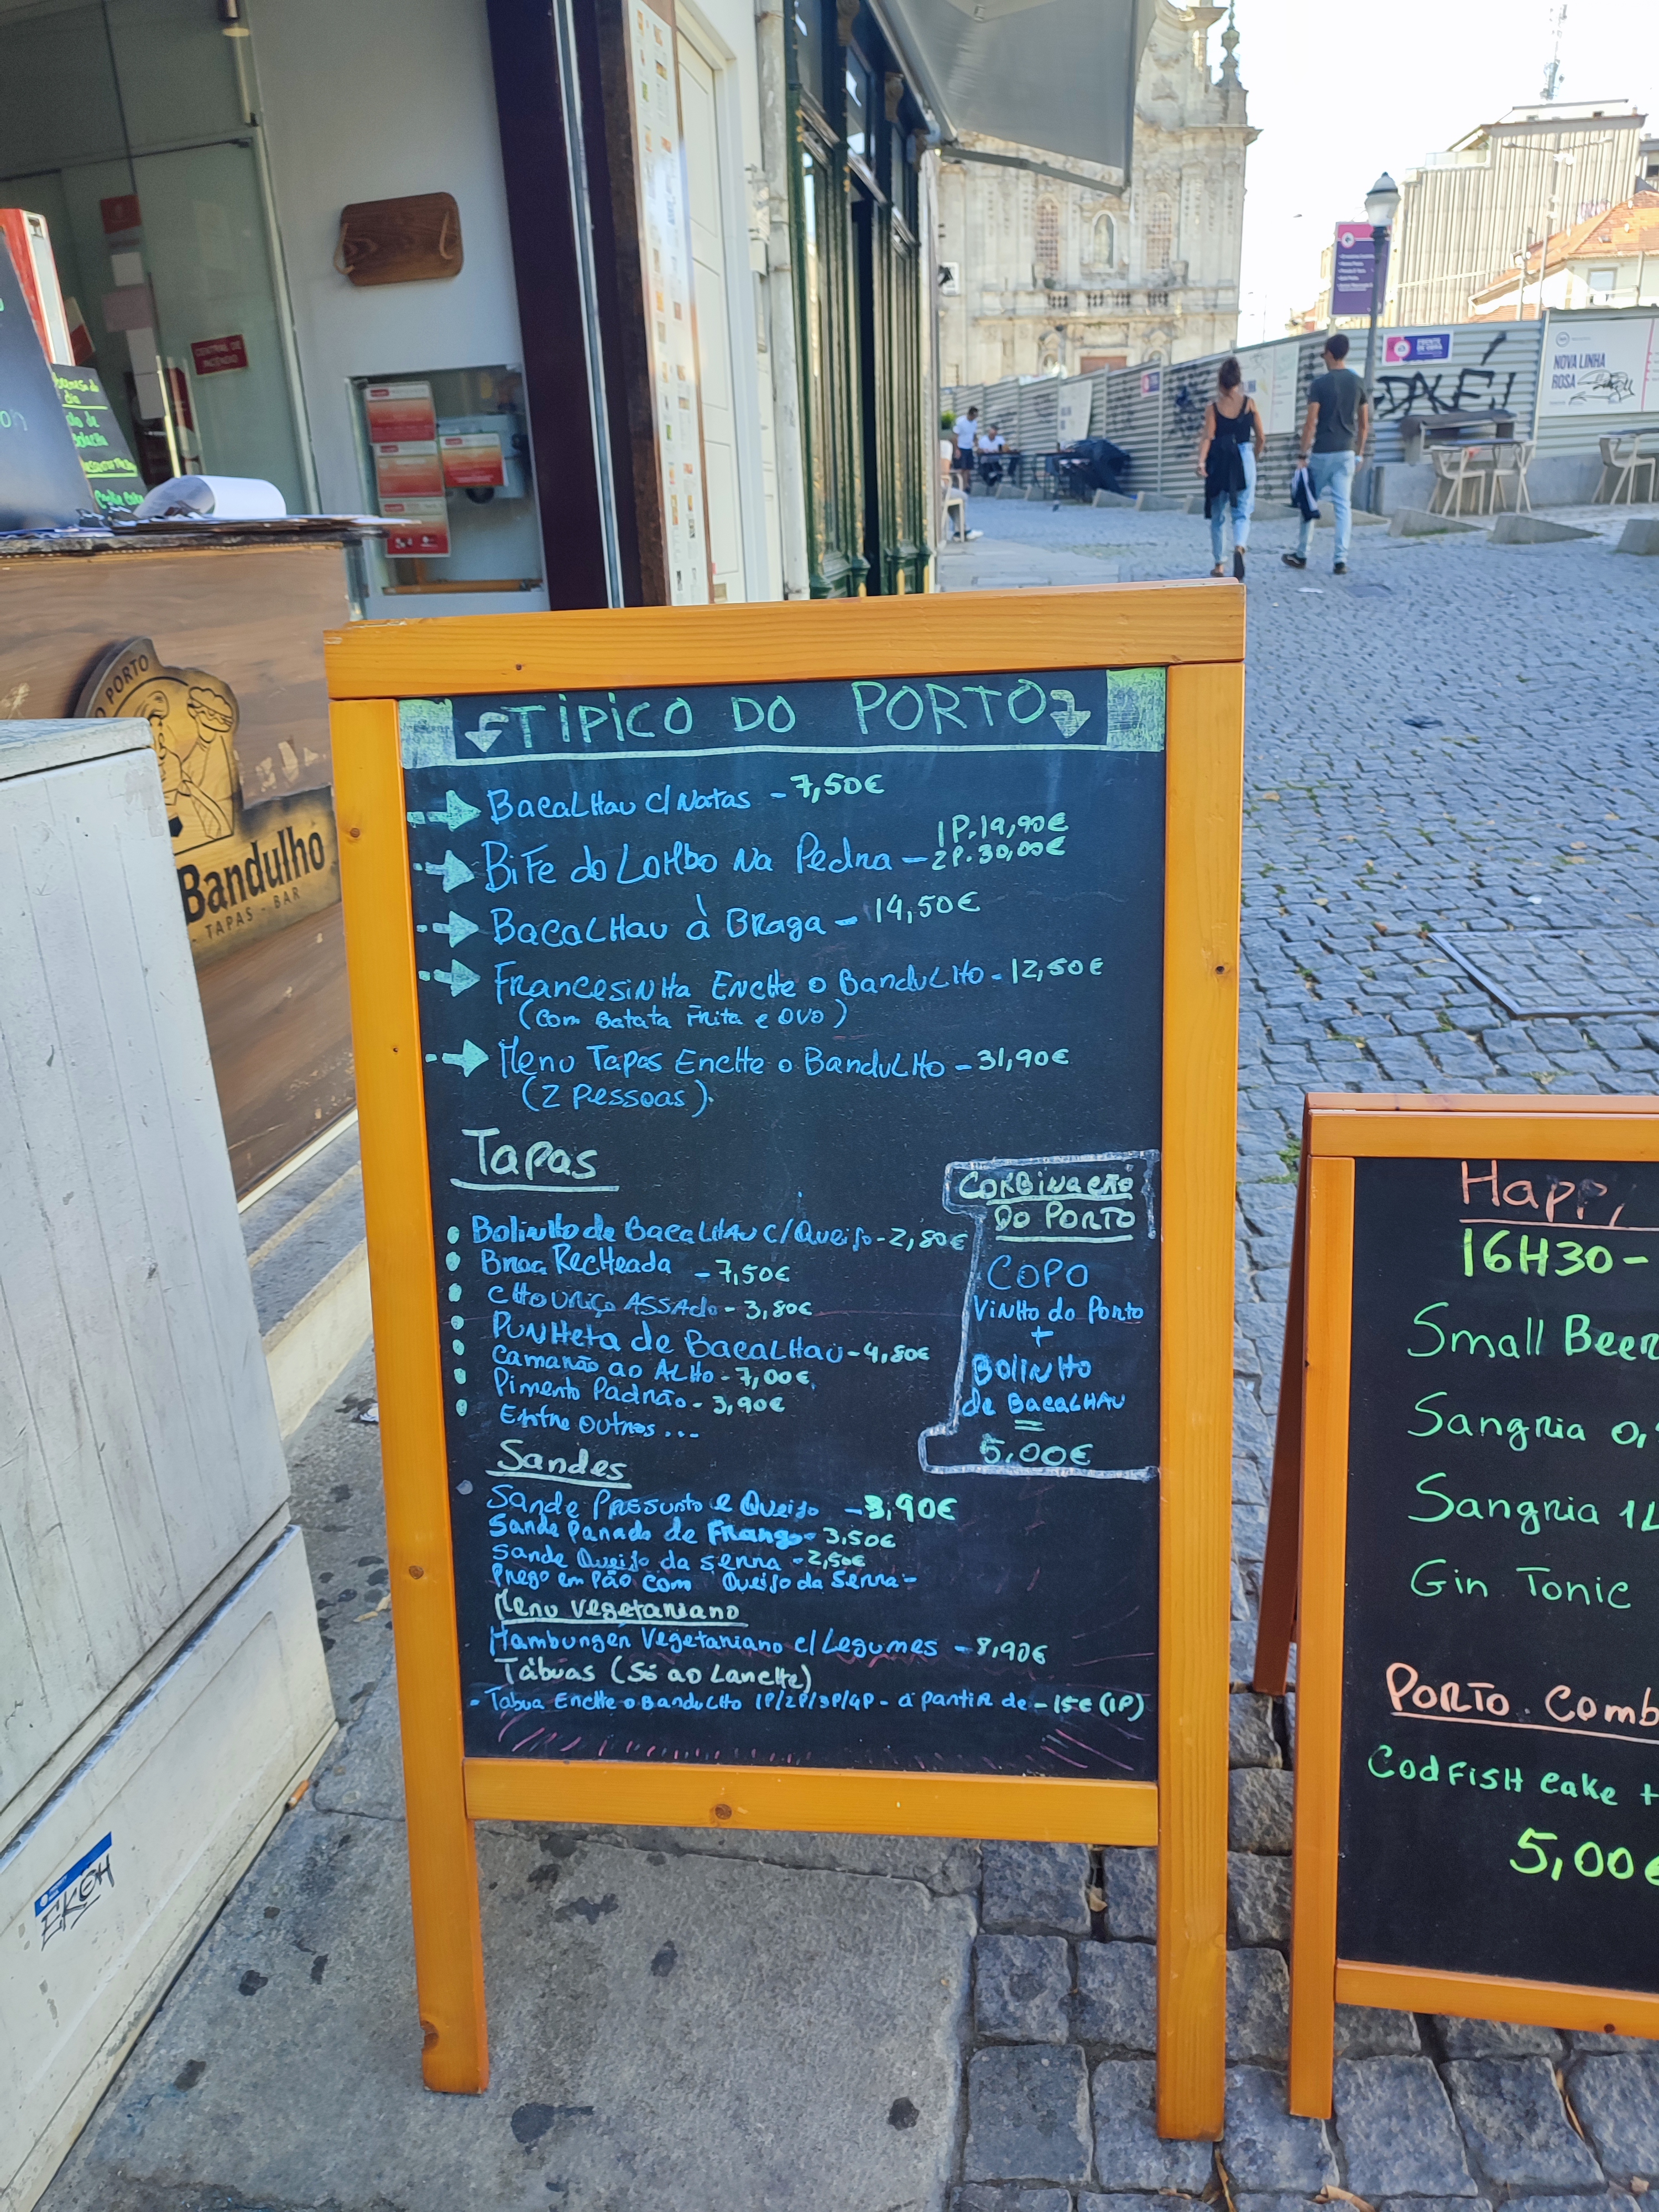 TÍPICO DO PORTO
Bacalhau c/ Natas - 7,50€
Bife do Lombo na Pedra - 1P. 19,90€
2P. 30,00€
Bacalhau à Braga - 14,50€
Francesinha Enche o Bandulho - 12,50€
(com Batata Frita e ovo)
Menu Tapas Enche o Bandulho - 31,90€
(2 Pessoas).
Tapas
Bolinho de Bacalhau c/ Queijo - 2,80€
Broa Recheada - 7,50€
Chouriço Assado - 3,80€
Punheta de Bacalhau - 4,80€
Camarão ao Alho - 7,00€
Pimento Padrão - 3,90€
Entre outros...
Combinação
do Porto
COPO
Vinho do Porto
+
Bolinho
de Bacalhau
=
5,00€
Sandes
Sande Presunto e Queijo - 3,90€
Sande Panado de Frango - 3,50€
Sande Queijo da Serra - 2,50€
Prego em Pão com Queijo da Serra -
Menu Vegetariano
Hamburger Vegetariano c/ Legumes - 8,90€
Tábuas (Só ao Lanche)
- Tabua Enche o Bandulho 1P/2P/3P/4P - a partir de - 15€ (1P)
Happy
16H30-
Small Beer
Sangria 0,
Sangria 1L
Gin Tonic
PORTO Comb
Codfish cake +
5,00€
PORTO
Bandulho
TAPAS - BAR
CENTRAL DE
INCÊNDIO
NOVA LINHA
ROSA
FRENTE
DE OBRA
EKOH